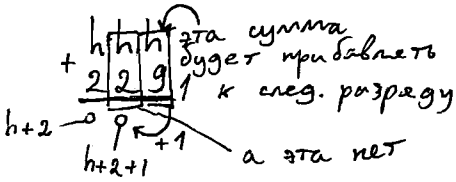 h h h эта сумма
+ будет прибавлять
2 2 9 1 к след. разряду
h+2 +1
h+2+1 а эта нет